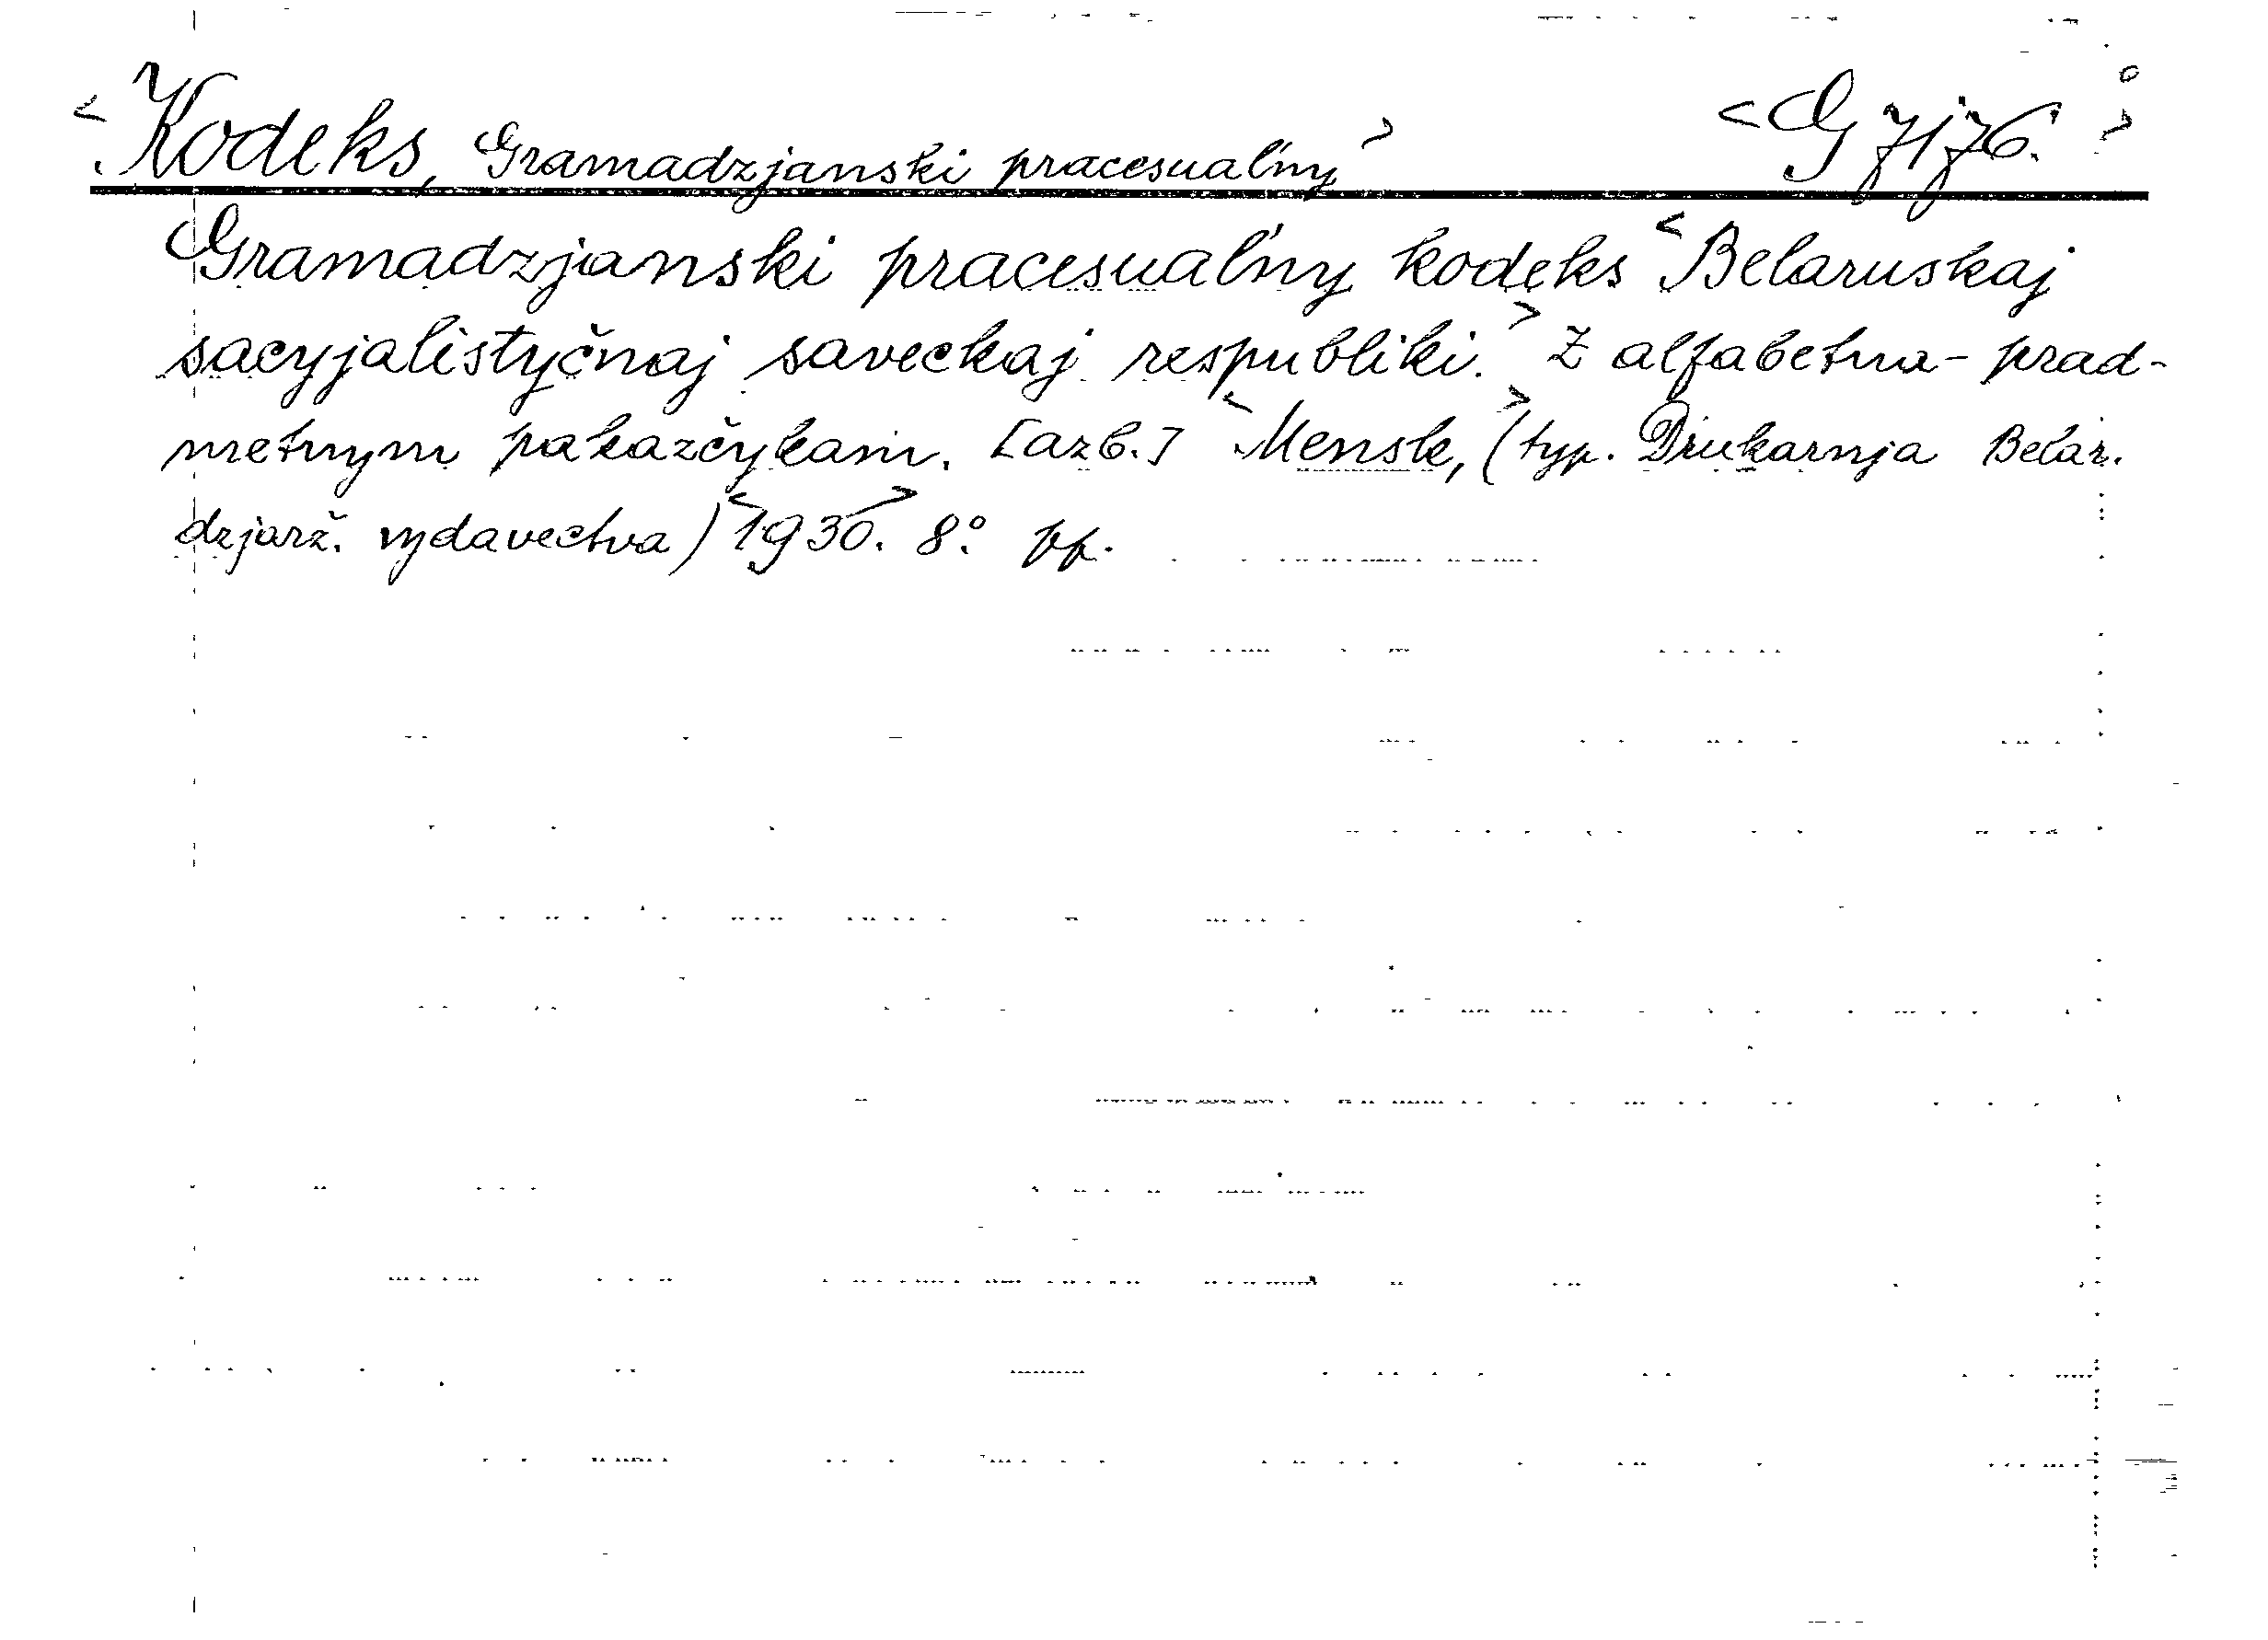 <Kodeks, Gramadzjanski pracesual'ny> <G 7176.>
Gramadzjanski pracesual'ny kodeks <Belaruskaj
sacyjalistyčnaj saveckaj respubliki.> Z alfabetna-prad-
metnym pakazčykam. [azb.] <Mensk,> (typ. Drukarnja Belar.
dzjarž. vydavectva) <1930.> 8° pp.